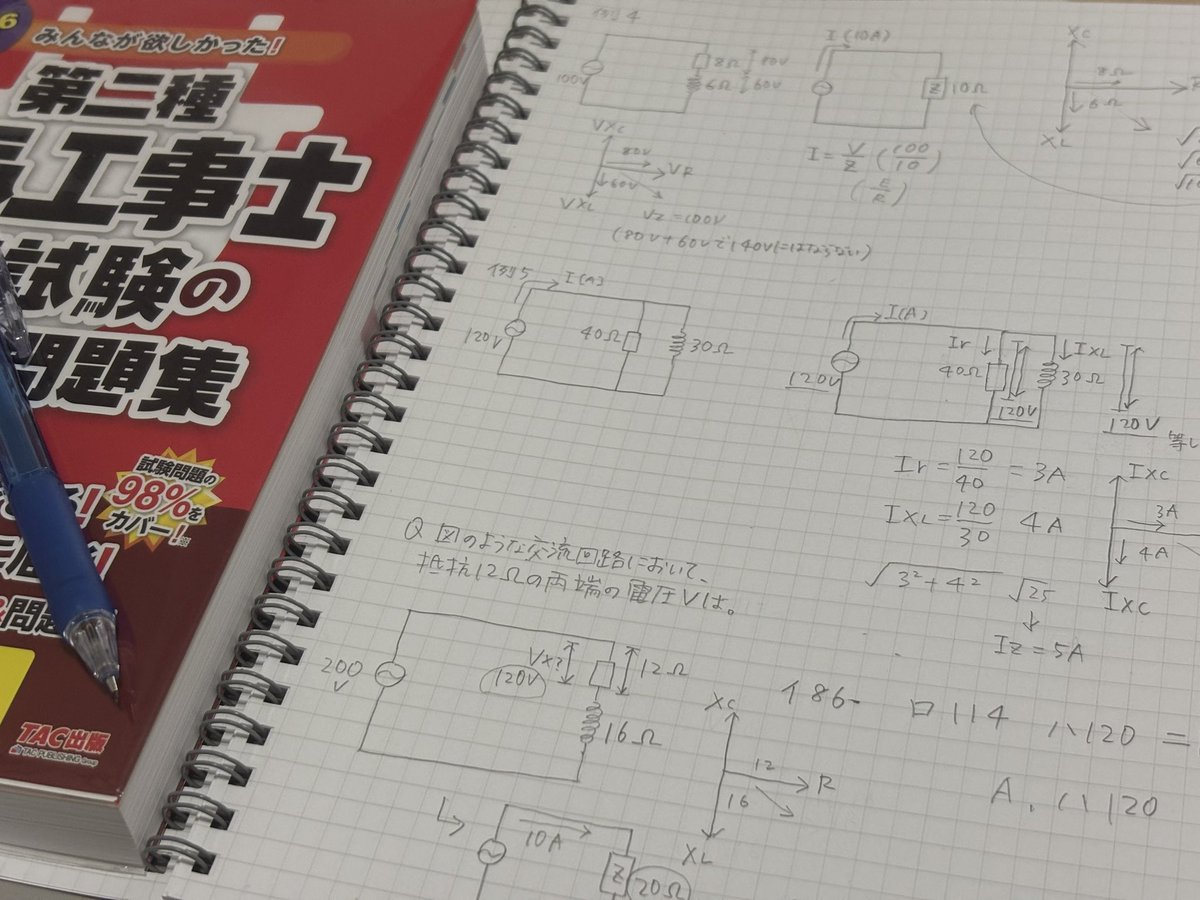 6
みんなが欲しかった!
第二種
工事士
試験の
問題集
試験問題の
98%を
カバー!※
問題
TAC出版
TAC PUBLISHING Group
例4
100V
8Ω
80V
6Ω
60V
I(10A)
Z
10Ω
XC
8Ω
6Ω
XL
VXC
80V
VR
60V
VXL
VZ=100V
(80V+60Vで140Vにはならない)
I=V/Z (100/10)
(E/R)
例5
I(A)
120V
40Ω
30Ω
I(A)
120V
Ir
40Ω
120V
IXL
30Ω
120V
等し
Ir=120/40=3A
IXL=120/30 4A
√3²+4² √25
↓
IZ=5A
IXC
3A
4A
IXC
Q 図のような交流回路において、
抵抗12Ωの両端の電圧Vは。
200
V
VX?
120V
12Ω
16Ω
XC
12
R
16
XL
イ86- ロ114 ハ120 =
A. ハ120
10A
Z
20Ω